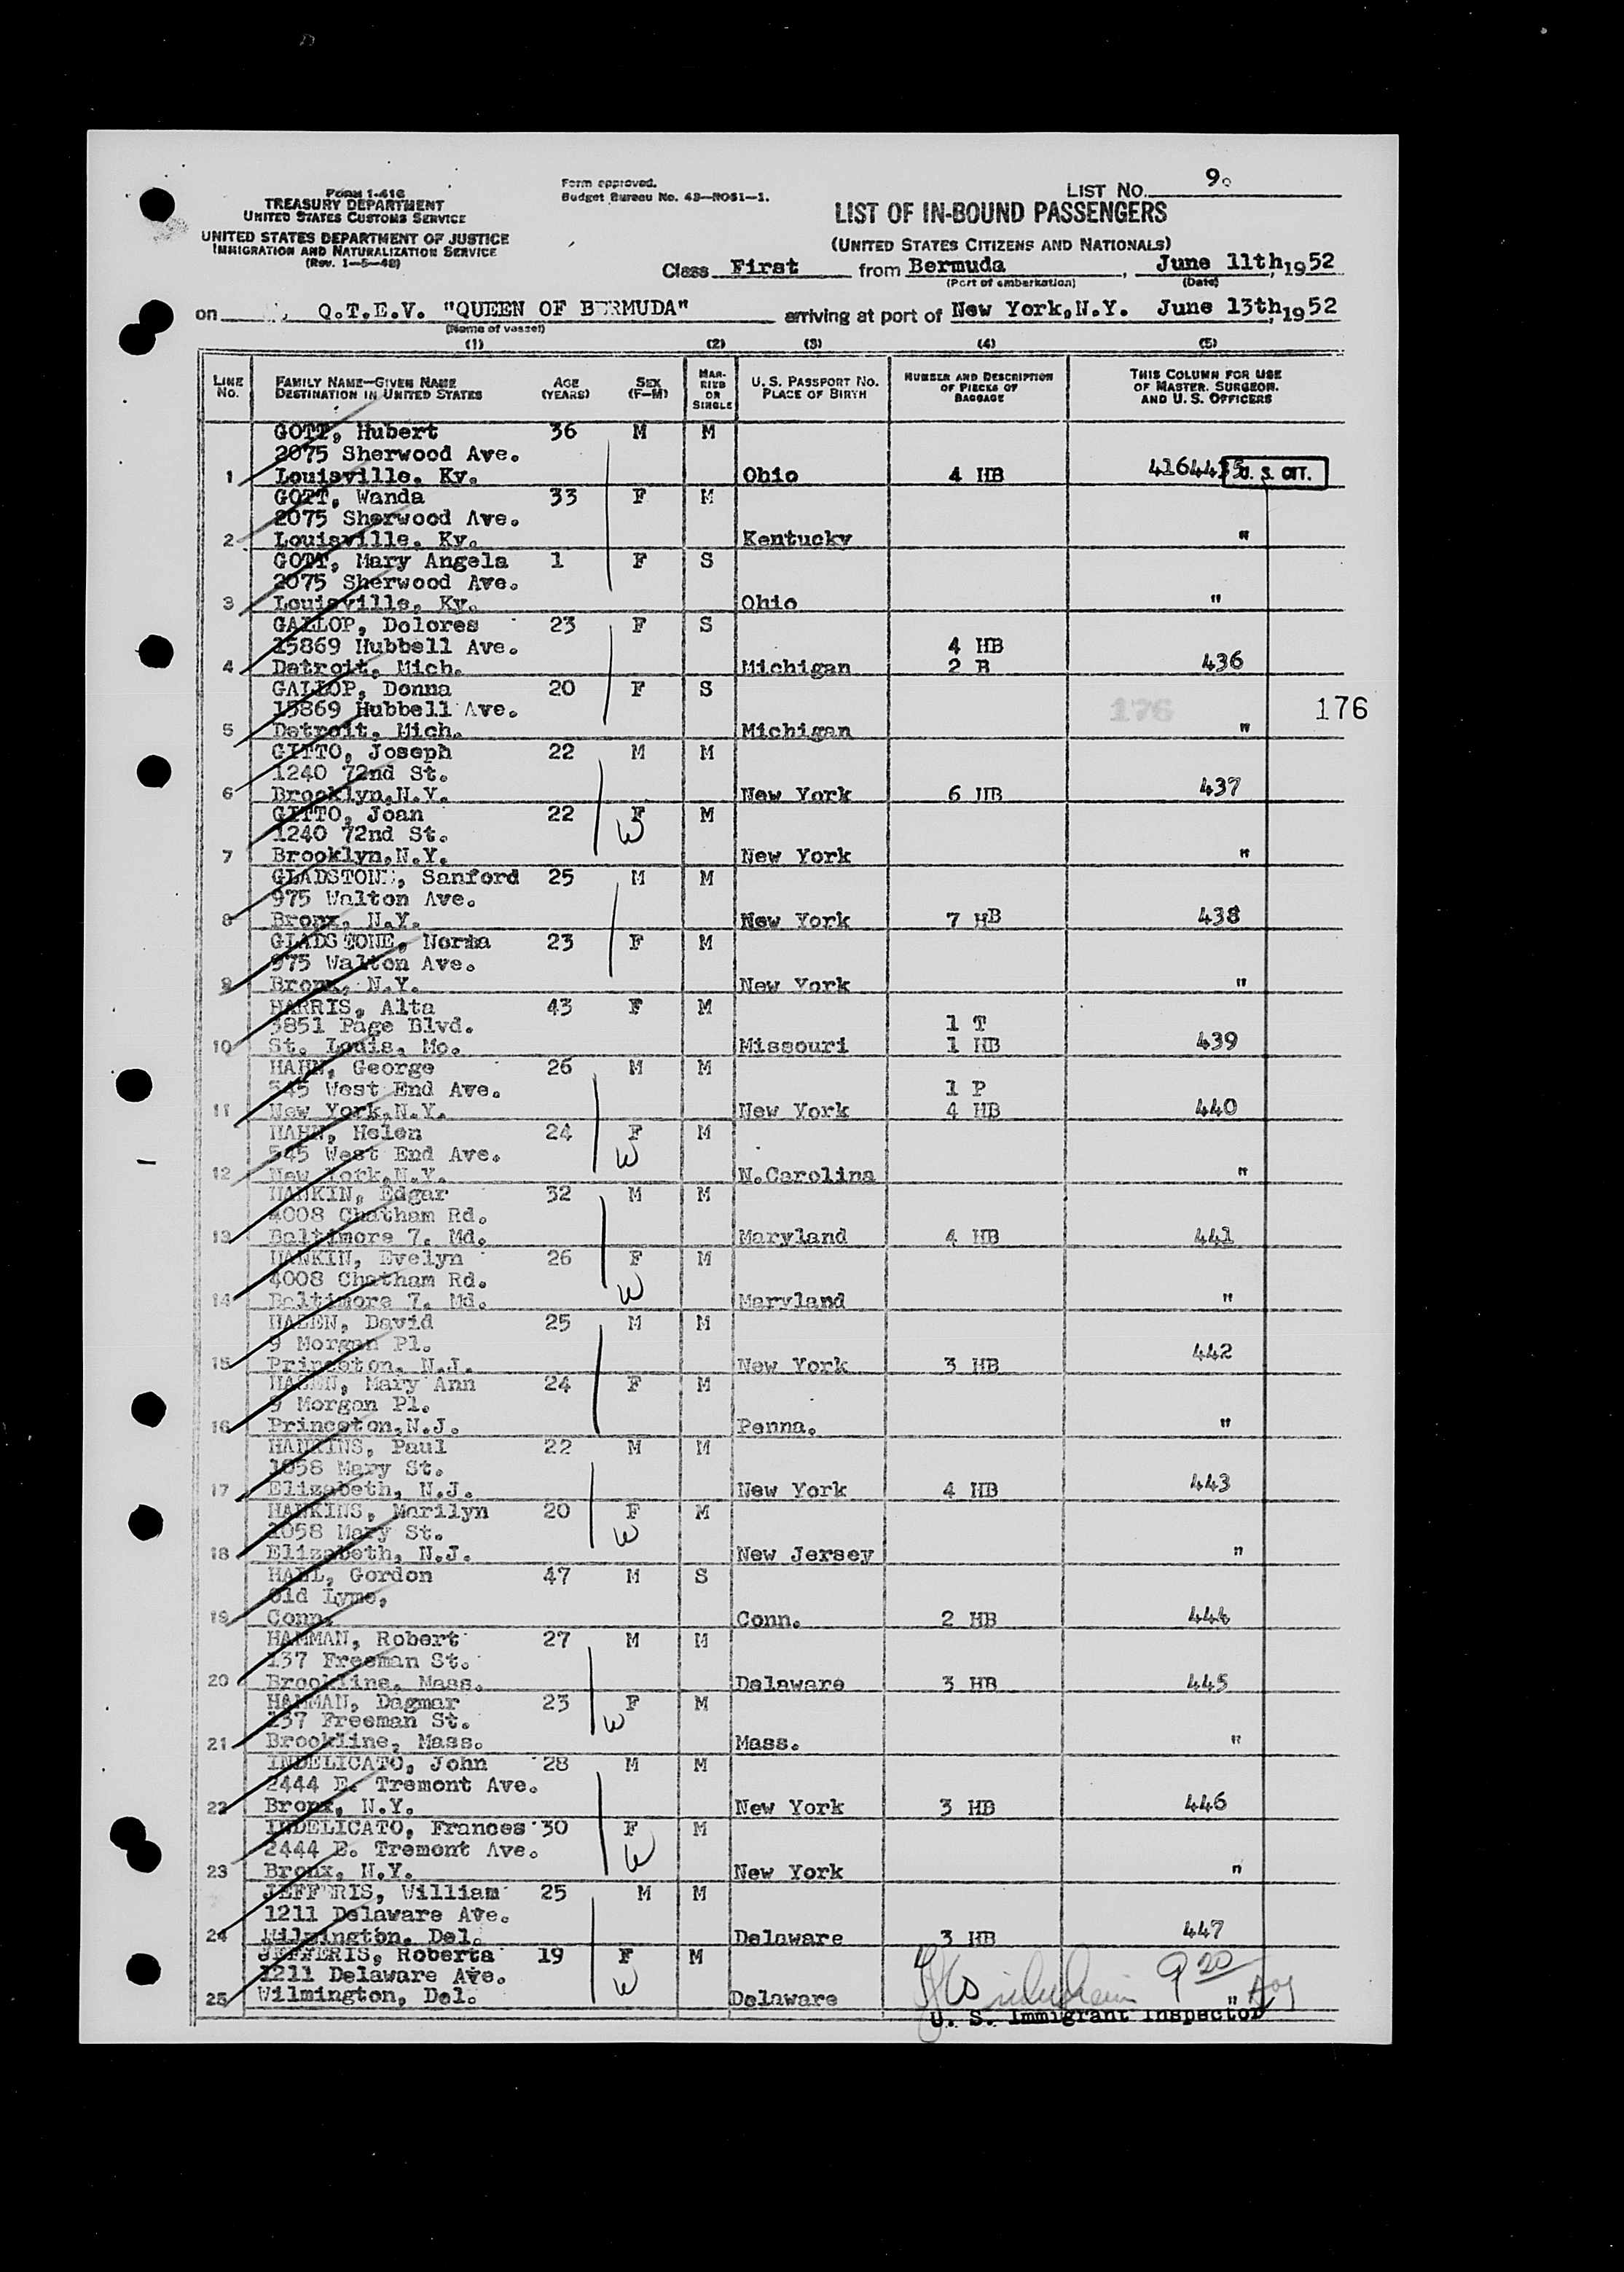 Form I-416
TREASURY DEPARTMENT
UNITED STATES CUSTOMS SERVICE
UNITED STATES DEPARTMENT OF JUSTICE
IMMIGRATION AND NATURALIZATION SERVICE
(Rev. 1-5-48)
Form approved.
Budget Bureau No. 43-R051-1.
LIST NO. 9.
LIST OF IN-BOUND PASSENGERS
(UNITED STATES CITIZENS AND NATIONALS)
Class First from Bermuda, June 11th, 1952
(Port of embarkation) (Date)
on Q.T.E.V. "QUEEN OF BERMUDA" arriving at port of New York, N.Y. June 13th, 1952
(Name of vessel)
(1) (2) (3) (4) (5)
LINE NO. FAMILY NAME—GIVEN NAME DESTINATION IN UNITED STATES AGE (YEARS) SEX (F—M) MARRIED OR SINGLE U. S. PASSPORT NO. PLACE OF BIRTH NUMBER AND DESCRIPTION OF PIECES OF BAGGAGE THIS COLUMN FOR USE OF MASTER, SURGEON, AND U. S. OFFICERS
GOTT, Hubert 36 M M
2075 Sherwood Ave.
1 Louisville, Ky. Ohio 4 HB 4164435 U. S. CIT.
GOTT, Wanda 33 F M
2075 Sherwood Ave.
2 Louisville, Ky. Kentucky "
GOTT, Mary Angela 1 F S
2075 Sherwood Ave.
3 Louisville, Ky. Ohio "
GALLOP, Dolores 23 F S
15869 Hubbell Ave. 4 HB
4 Detroit, Mich. Michigan 2 B 436
GALLOP, Donna 20 F S
15869 Hubbell Ave. 176 176
5 Detroit, Mich. Michigan "
GITTO, Joseph 22 M M
1240 72nd St.
6 Brooklyn, N.Y. New York 6 HB 437
GITTO, Joan 22 F M
1240 72nd St. W
7 Brooklyn, N.Y. New York "
GLADSTONE, Sanford 25 M M
975 Walton Ave.
8 Bronx, N.Y. New York 7 HB 438
GLADSTONE, Norma 23 F M
975 Walton Ave.
9 Bronx, N.Y. New York "
HARRIS, Alta 43 F M
5851 Page Blvd. 1 T
10 St. Louis, Mo. Missouri 1 HB 439
HAHN, George 26 M M
545 West End Ave. 1 P
11 New York, N.Y. New York 4 HB 440
HAHN, Helen 24 F M
545 West End Ave. W
12 New York, N.Y. N.Carolina "
HANKIN, Edgar 32 M M
4008 Chatham Rd.
13 Baltimore 7, Md. Maryland 4 HB 441
HANKIN, Evelyn 26 F M
4008 Chatham Rd. W
14 Baltimore 7, Md. Maryland "
HAZEN, David 25 M M
9 Morgan Pl.
15 Princeton, N.J. New York 3 HB 442
HAZEN, Mary Ann 24 F M
9 Morgan Pl.
16 Princeton, N.J. Penna. "
HANKINS, Paul 22 M M
1058 Mary St.
17 Elizabeth, N.J. New York 4 HB 443
HANKINS, Marilyn 20 F M
1058 Mary St. W
18 Elizabeth, N.J. New Jersey "
HALL, Gordon 47 M S
Old Lyme,
19 Conn. Conn. 2 HB 444
HAMMAN, Robert 27 M M
137 Freeman St.
20 Brookline, Mass. Delaware 3 HB 445
HAMMAN, Dagmar 23 F M
137 Freeman St. W
21 Brookline, Mass. Mass. "
INDELICATO, John 28 M M
2444 E. Tremont Ave.
22 Bronx, N.Y. New York 3 HB 446
INDELICATO, Frances 30 F M
2444 E. Tremont Ave. W
23 Bronx, N.Y. New York "
JEFFERIS, William 25 M M
1211 Delaware Ave.
24 Wilmington, Del. Delaware 3 HB 447
JEFFERIS, Roberta 19 F M
1211 Delaware Ave. W 9 20
25 Wilmington, Del. Delaware "
U. S. Immigrant Inspector